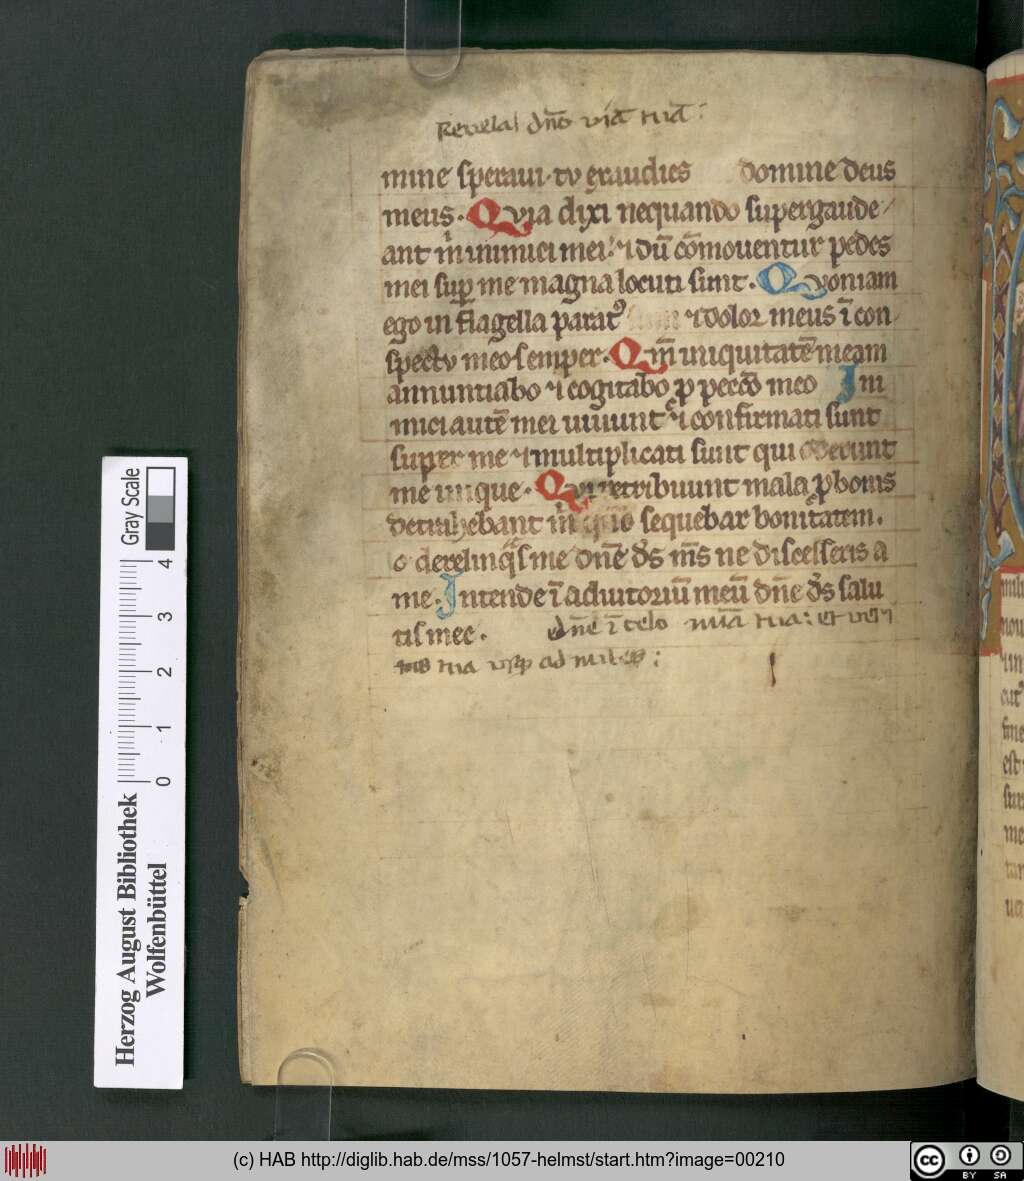 Revela dño viā tuā:
mine speraui· tv exaudies domine deus
meus· Qvia dixi nequando supergaude/
ant m̊ inimici mei: ⁊ dū cōmouentur pedes
mei sup̱ me magna locuti sunt· Qvoniam
ego in flagella parat⁹ ⁊ dolor meus ī con/
spectv meo semper· Qm̄ iniquitatē meam
annuntiabo ⁊ cogitabo p̱ pecc̄o meo Ini
mici autē mei uiuunt ⁊ confirmati sunt
super me ⁊ multiplicati sunt qui oderunt
me inique· Qvi retribuunt mala p̱ bonis
detrahebant m̊ sequebar bonitatem·
derelinq̊s me dn̄e ds̄ ms̄ ne discesseris a
me· Intende ī adiutoriū meū dn̄e ds̄ salu
tis mee·
dn̄e ī celo mīa tua: et veri
tua usq ad nubes:
Gray Scale
4
3
2
1
0
Herzog August Bibliothek
Wolfenbüttel
(c) HAB http://diglib.hab.de/mss/1057-helmst/start.htm?image=00210
cc BY SA